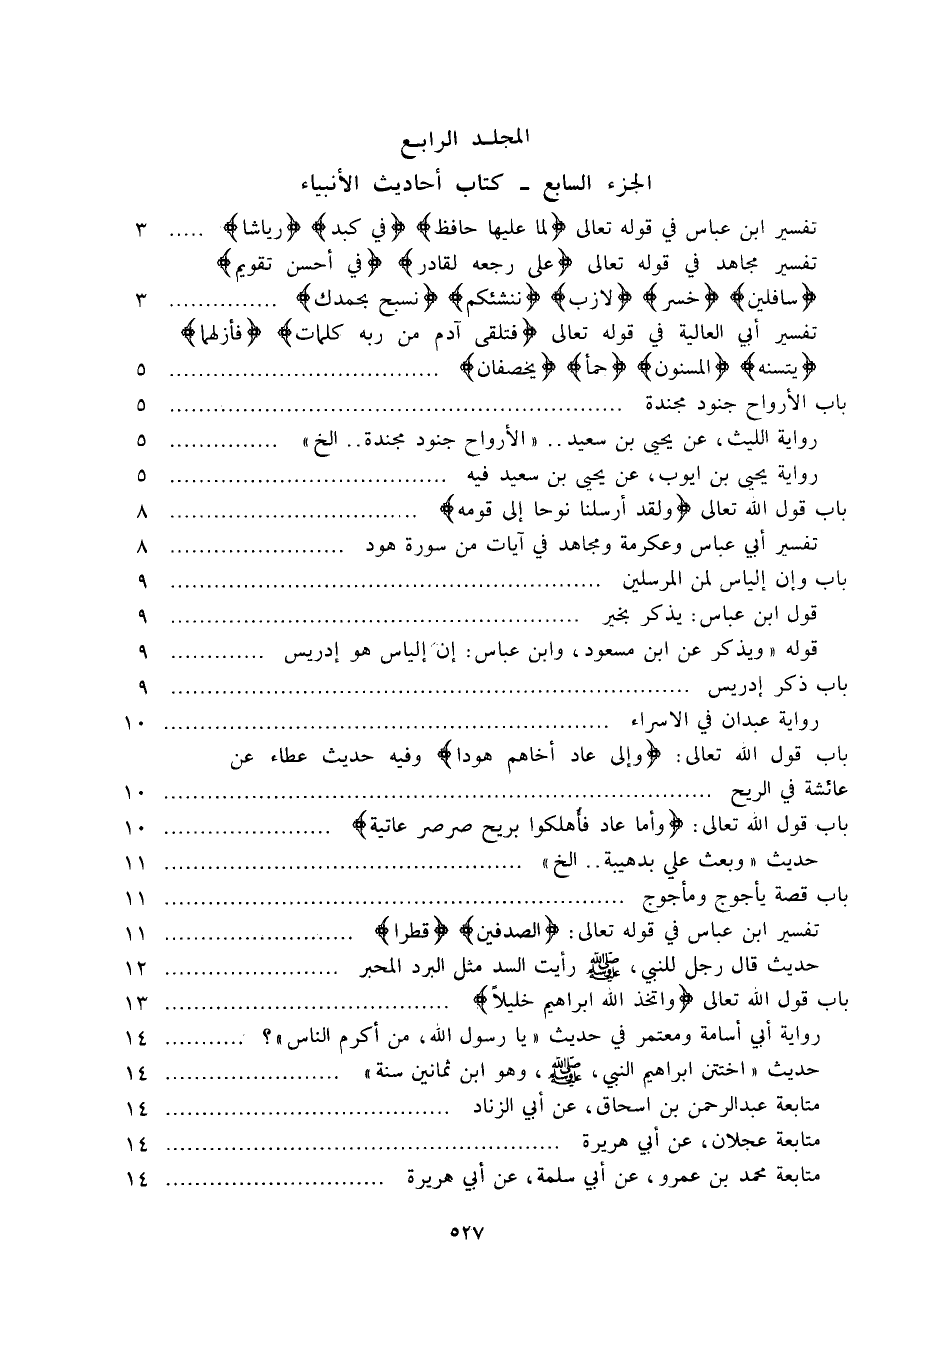 المجلد الرابع
الجزء السابع ـ كتاب أحاديث الأنبياء
تفسير ابن عباس في قوله تعالى ﴿لما عليها حافظ﴾ ﴿في كبد﴾ ﴿رياشا﴾ ..... ٣
تفسير مجاهد في قوله تعالى ﴿على رجعه لقادر﴾ ﴿في أحسن تقويم﴾
﴿سافلين﴾ ﴿خسر﴾ ﴿لازب﴾ ﴿ننشئكم﴾ ﴿نسبح بحمدك﴾ ............... ٣
تفسير أبي العالية في قوله تعالى ﴿فتلقى آدم من ربه كلمات﴾ ﴿فأزلهما﴾
﴿يتسنه﴾ ﴿المسنون﴾ ﴿حمأ﴾ ﴿يخصفان﴾ ..................................... ٥
باب الأرواح جنود مجندة .............................................................. ٥
رواية الليث، عن يحيى بن سعيد.. «الأرواح جنود مجندة.. الخ» ............... ٥
رواية يحيى بن ايوب، عن يحيى بن سعيد فيه ...................................... ٥
باب قول الله تعالى ﴿ولقد أرسلنا نوحا إلى قومه﴾ .................................. ٨
تفسير أبي عباس وعكرمة ومجاهد في آيات من سورة هود ........................ ٨
باب وإن إلياس لمن المرسلين ........................................................... ٩
قول ابن عباس: يذكر بخير ........................................................ ٩
قوله «ويذكر عن ابن مسعود، وابن عباس: إن إلياس هو إدريس ............. ٩
باب ذكر إدريس ....................................................................... ٩
رواية عبدان في الاسراء ............................................................. ١٠
باب قول الله تعالى: ﴿وإلى عاد أخاهم هودا﴾ وفيه حديث عطاء عن
عائشة في الريح ........................................................................... ١٠
باب قول الله تعالى: ﴿وأما عاد فأهلكوا بريح صرصر عاتية﴾ ....................... ١٠
حديث «وبعث علي بذهيبة.. الخ» ................................................. ١١
باب قصة يأجوج ومأجوج ............................................................... ١١
تفسير ابن عباس في قوله تعالى: ﴿الصدفين﴾ ﴿قطرا﴾ .......................... ١١
حديث قال رجل للنبي، ﷺ رأيت السد مثل البرد المحبر ........................ ١٢
باب قول الله تعالى ﴿واتخذ الله ابراهيم خليلاً﴾ ....................................... ١٣
رواية أبي أسامة ومعتمر في حديث «يا رسول الله، من أكرم الناس»؟ ........... ١٤
حديث «اختتن ابراهيم النبي، ﷺ، وهو ابن ثمانين سنة» ........................ ١٤
متابعة عبدالرحمن بن اسحاق، عن أبي الزناد ....................................... ١٤
متابعة عجلان، عن أبي هريرة ...................................................... ١٤
متابعة محمد بن عمرو، عن أبي سلمة، عن أبي هريرة .............................. ١٤
٥٢٧